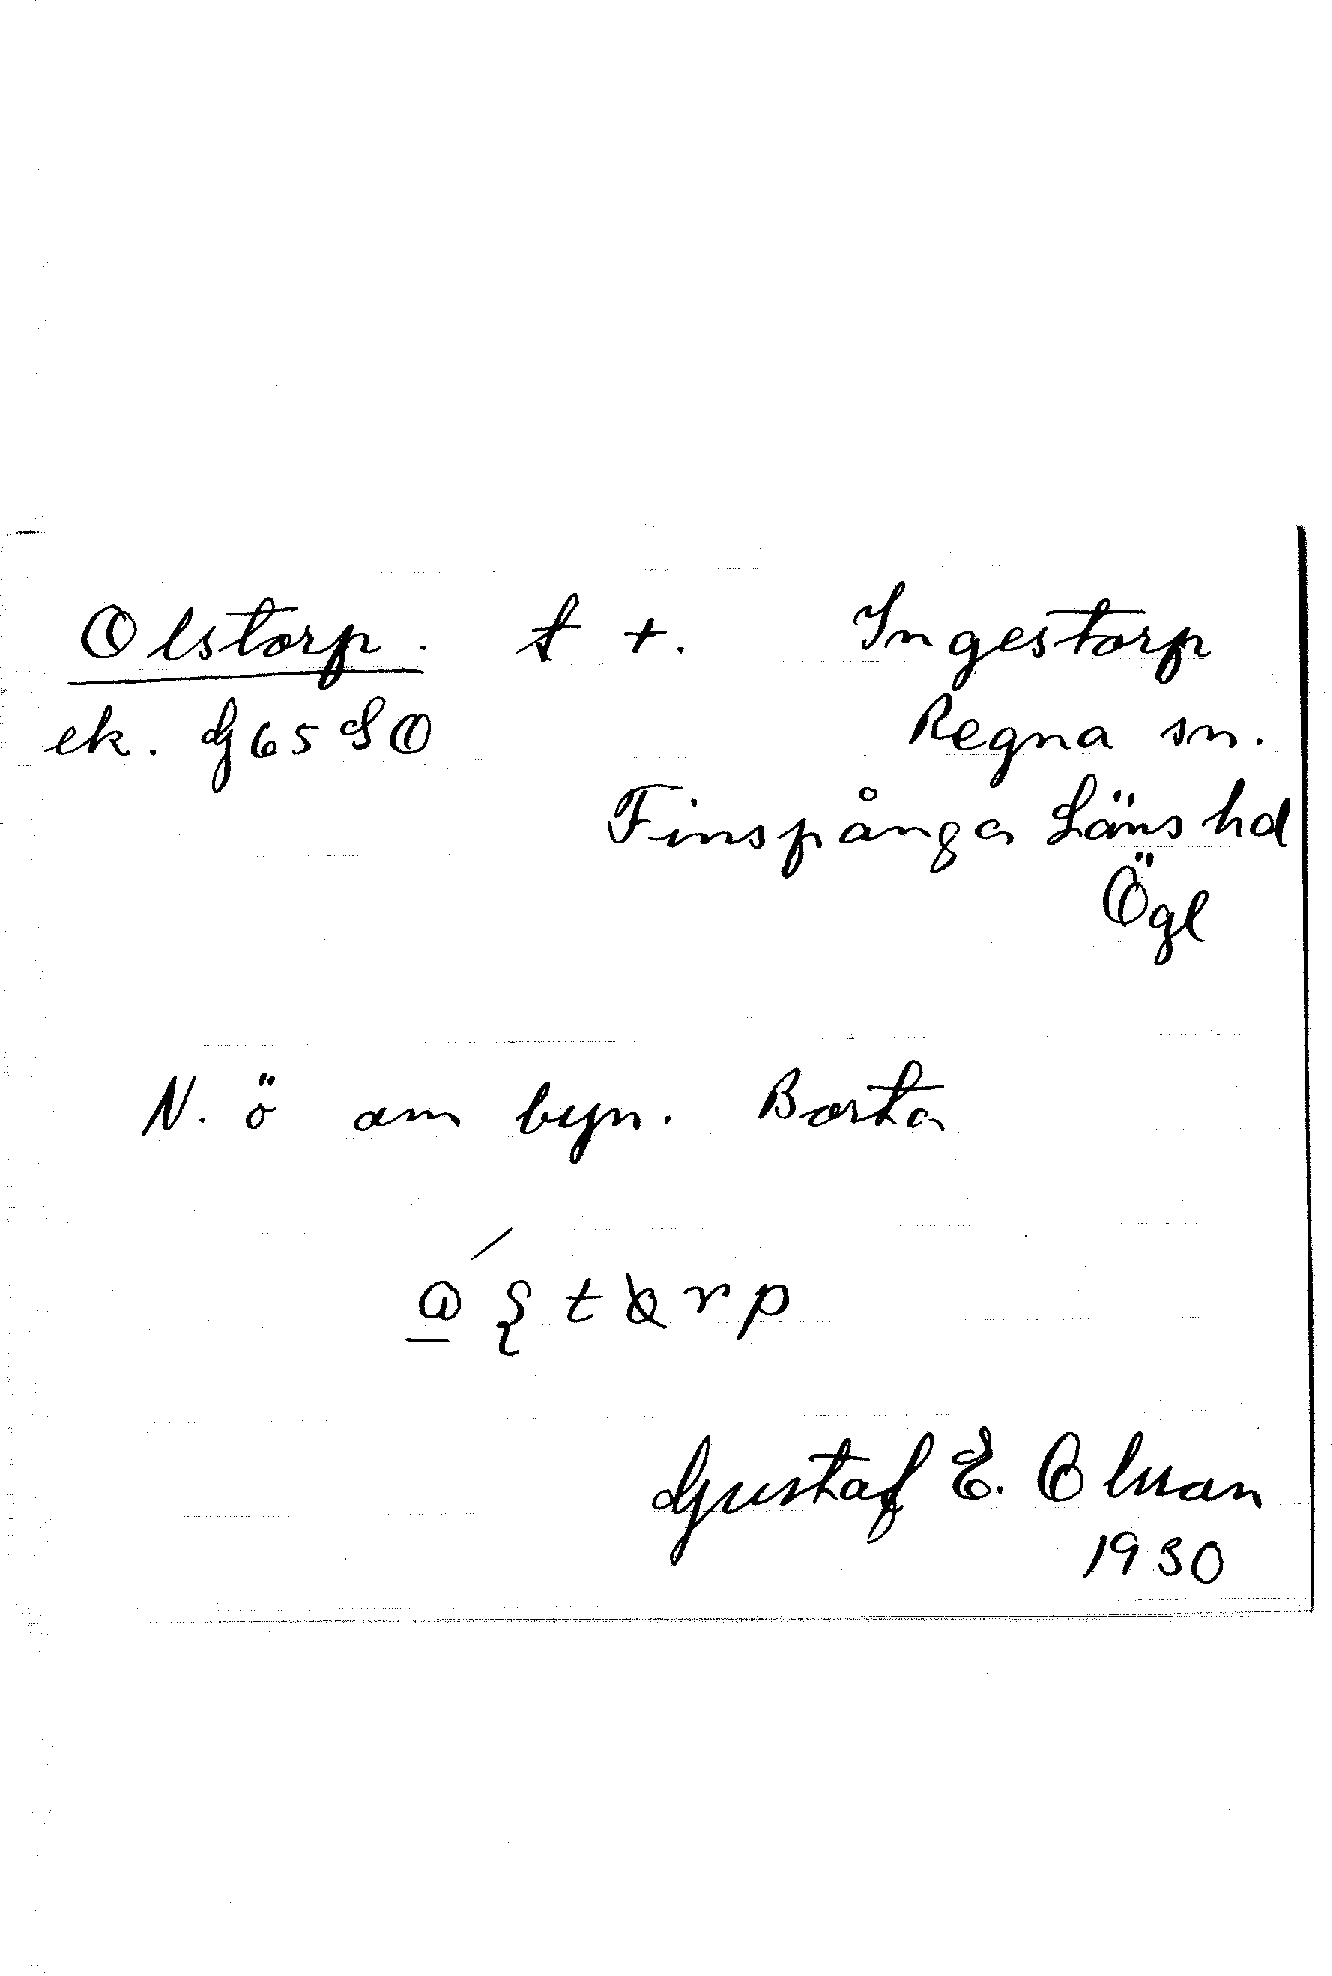 Olstorp. t +. Ingestorp
ek. G65SO Regna sn.
Finspånga Läns hd
Ögl
N. ö om byn. Borta
Gustaf E. Olsson
1930